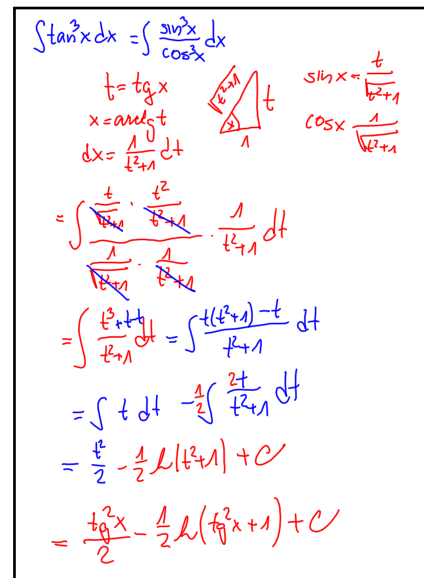 ∫tan³x dx = ∫ sin³x/cos³x dx
t = tg x
x = arctg t
dx = 1/(t²+1) dt
√(t²+1) t x 1
sin x = t/√(t²+1)
cos x 1/√(t²+1)
= ∫ (t/√(t²+1) · t²/(t²+1))/(1/√(t²+1) · 1/(t²+1)) · 1/(t²+1) dt
= ∫ (t³+t-t)/(t²+1) dt = ∫ (t(t²+1) - t)/(t²+1) dt
= ∫ t dt - 1/2 ∫ 2t/(t²+1) dt
= t²/2 - 1/2 ln(t²+1) + C
= tg²x/2 - 1/2 ln(tg²x+1) + C